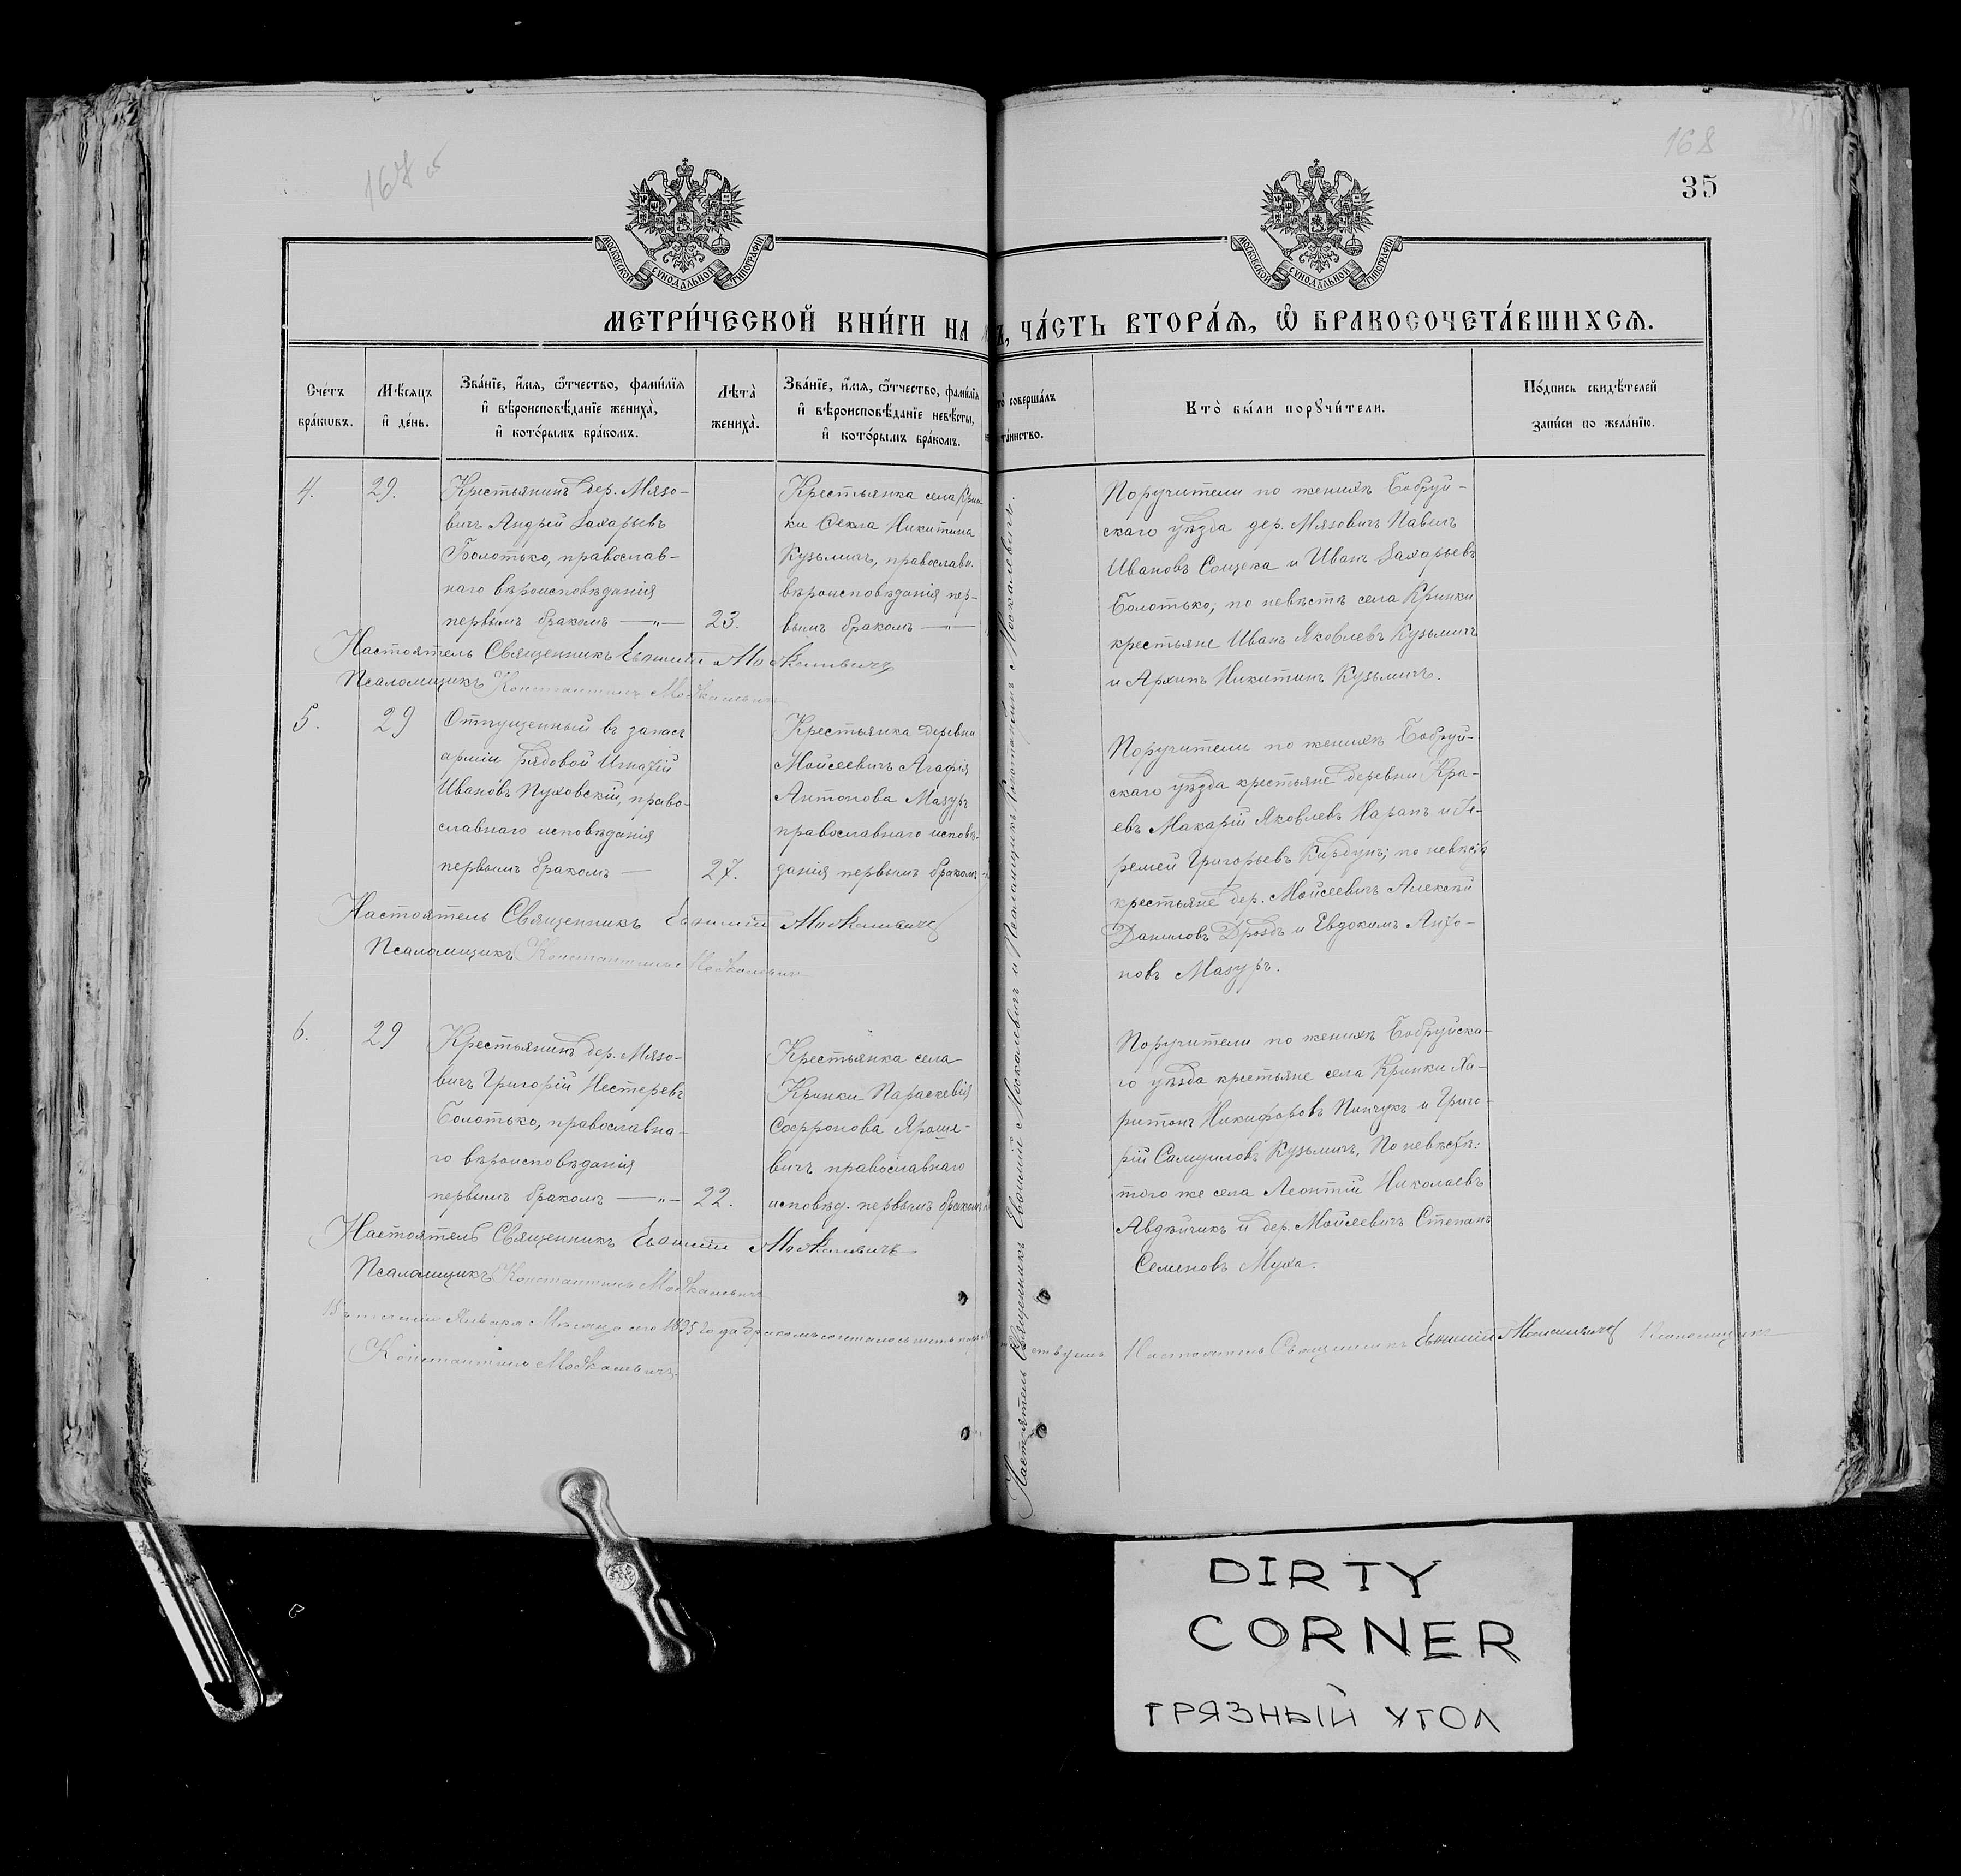 167 об
168
35
МОСКОВСКОЙ СѴНОДАЛЬНОЙ ТИПОГРАФІИ
МОСКОВСКОЙ СѴНОДАЛЬНОЙ ТИПОГРАФІИ
МЕТРИ́ЧЕСКОЙ КНИ́ГИ НА
Ъ, ЧА́СТЬ ВТОРА́Ѧ, Ѽ БРАКОСОЧЕТА́ВШИХСѦ.
Сче́тъ
бра́кѡвъ.
Мѣ́сѧцъ
и҆ де́нь.
Зва́нїе, и҆́мѧ, ѻ҆́тчество, фами́лїѧ
и҆ вѣроисповѣ́данїе жениха̀,
и҆ кото́рымъ бра́комъ.
Лѣта̀
жениха̀.
Зва́нїе, и҆́мѧ, ѻ҆́тчество, фами́лїѧ
и҆ вѣроисповѣ́данїе невѣ́сты,
и҆ кото́рымъ бра́комъ.
то̀ соверша́лъ
та́инство.
Кто̀ бы́ли порꙋчи́тели.
По́дпись свидѣ́телей
за́писи по жела́нїю.
4.
29.
Крестьянинъ дер. Мязо-
вичъ Андрей Захарьевъ
Болотько, православ-
наго вѣроисповѣданія
первымъ бракомъ —„—
23.
Крестьянка села Крин-
ки Ѳекла Никитина
Кузьмичъ, православн.
вѣроисповѣданія пер-
вымъ бракомъ —„—
Поручители по женихѣ Бобруй-
скаго уѣзда дер. Мязовичъ Павелъ
Ивановъ Сощека и Иванъ Захарьевъ
Болотько; по невѣстѣ села Кринки
крестьяне Иванъ Яковлевъ Кузьмичъ
и Архипъ Никитинъ Кузьмичъ.
Настоятель Священникъ Евѳимій Москалевичъ
Псаломщикъ Константинъ Москалевичъ
5.
29
Отпущенный въ запасъ
арміи рядовой Игнатій
Ивановъ Пуховскій, право-
славнаго исповѣданія
первымъ бракомъ —
27.
Крестьянка деревни
Моисеевичъ Агафія
Антонова Мазуръ
православнаго исповѣ-
данія первымъ бракомъ
Поручители по женихѣ Бобруй-
скаго уѣзда крестьяне деревни Кра-
евъ Макарій Яковлевъ Царапъ и Іе-
ремей Григорьевъ Кирдунъ; по невѣстѣ
крестьяне дер. Моисеевичъ Алексѣй
Даниловъ Дроздъ и Евдокимъ Анто-
новъ Мазуръ.
Настоятель Священникъ Евѳимій Москалевичъ
Псаломщикъ Константинъ Москалевичъ
6.
29
Крестьянинъ дер. Мязо-
вичъ Григорій Нестеревъ
Болотько, православна-
го вѣроисповѣданія
первымъ бракомъ —„—
22.
Крестьянка села
Кринки Параскевія
Софронова Яроше-
вичъ православнаго
исповѣд. первымъ бракомъ
Поручители по женихѣ Бобруйска-
го уѣзда крестьяне села Кринки Ха-
ритонъ Никифоровъ Пинчукъ и Григо-
рій Самуиловъ Кузьмичъ. По невѣстѣ:
того же села Леонтій Николаевъ
Авдѣйчикъ и дер. Моисеевичъ Степанъ
Семеновъ Муха.
Настоятель Священникъ Евѳимій Москалевичъ
Псаломщикъ Константинъ Москалевичъ
Въ теченіи Января Мѣсяца сего 1895 года бракомъ сочеталось шесть паръ
Настоятель Священникъ Евѳимій Москалевичъ Псаломщикъ
Константинъ Москалевичъ.
Настоятель Священникъ Евѳимій Москалевичъ и Псаломщикъ Константинъ Москалевичъ.
DIRTY
CORNER
ГРЯЗНЫЙ УГОЛ